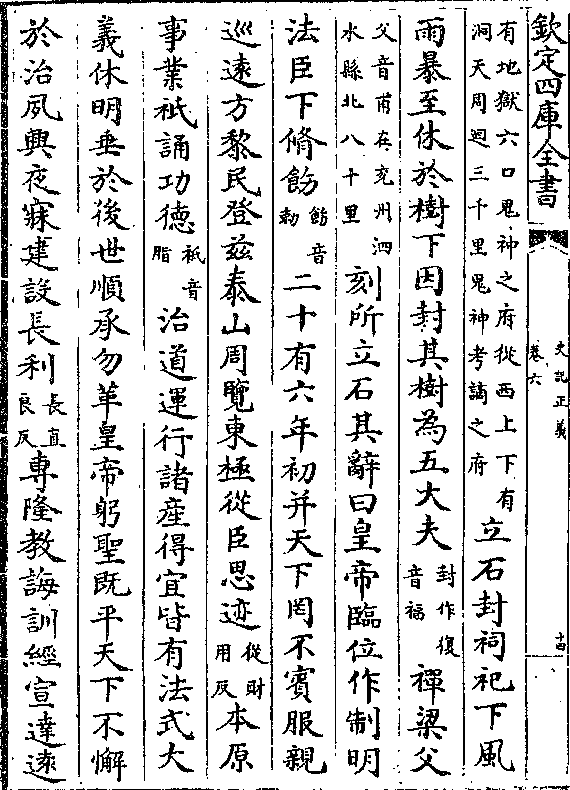 欽定四庫全書
史記正義
卷六
十四
有地獄六口鬼神之府從西上下有
洞天周迴三千里鬼神考謫之府
立石封祠祀下風
雨暴至休於樹下因封其樹為五大夫
封作復
音福
禪梁父
父音甫在兖州泗
水縣北八十里
刻所立石其辭曰皇帝臨位作制明
法臣下脩飭
飭音
勅
二十有六年初并天下罔不賓服親
巡遠方黎民登兹泰山周覽東極從臣思迹
從財
用反
本原
事業祇誦功德
祇音
脂
治道運行諸產得宜皆有法式大
義休明垂於後世順承勿革皇帝躬聖既平天下不懈
於治夙興夜寐建設長利
長直
良反
專隆教誨訓經宣達遠